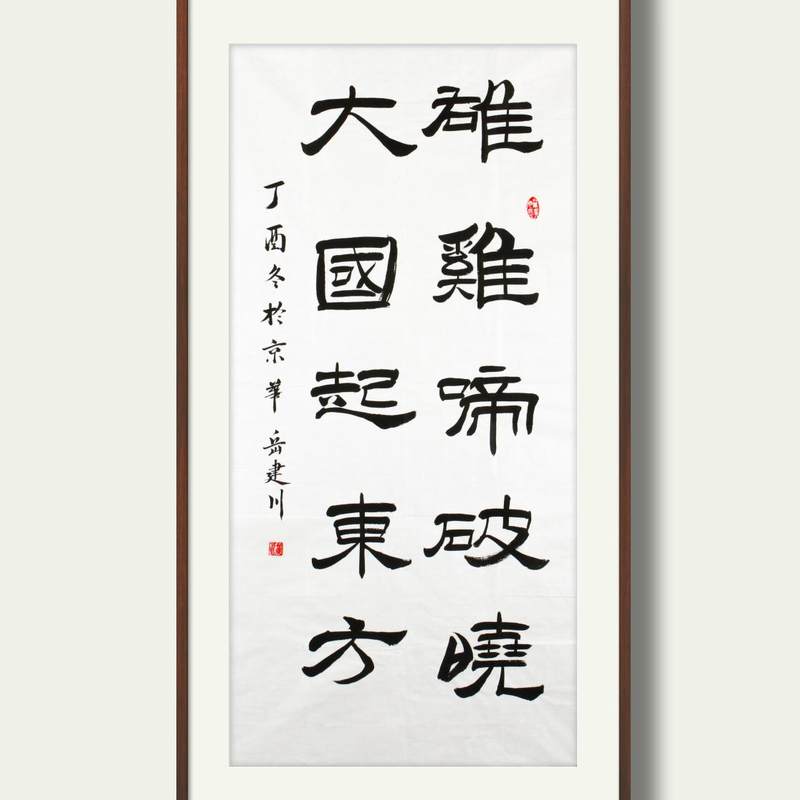 雄雞啼破曉
大國起東方
丁酉冬於京華岳建川